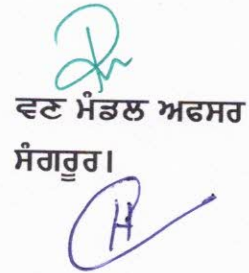 ਵਣ ਮੰਡਲ ਅਫਸਰ
ਸੰਗਰੂਰ।